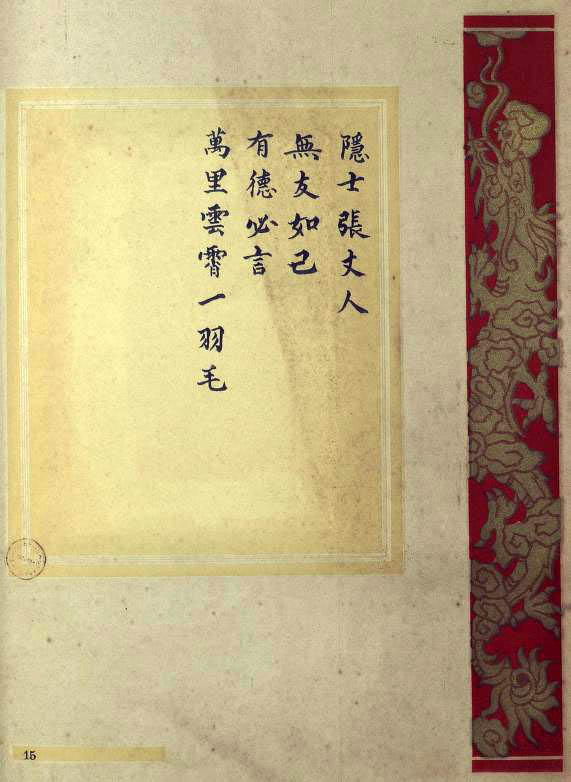 隱士張丈人
無友如己
有德必言
萬里雲霄一羽毛
15